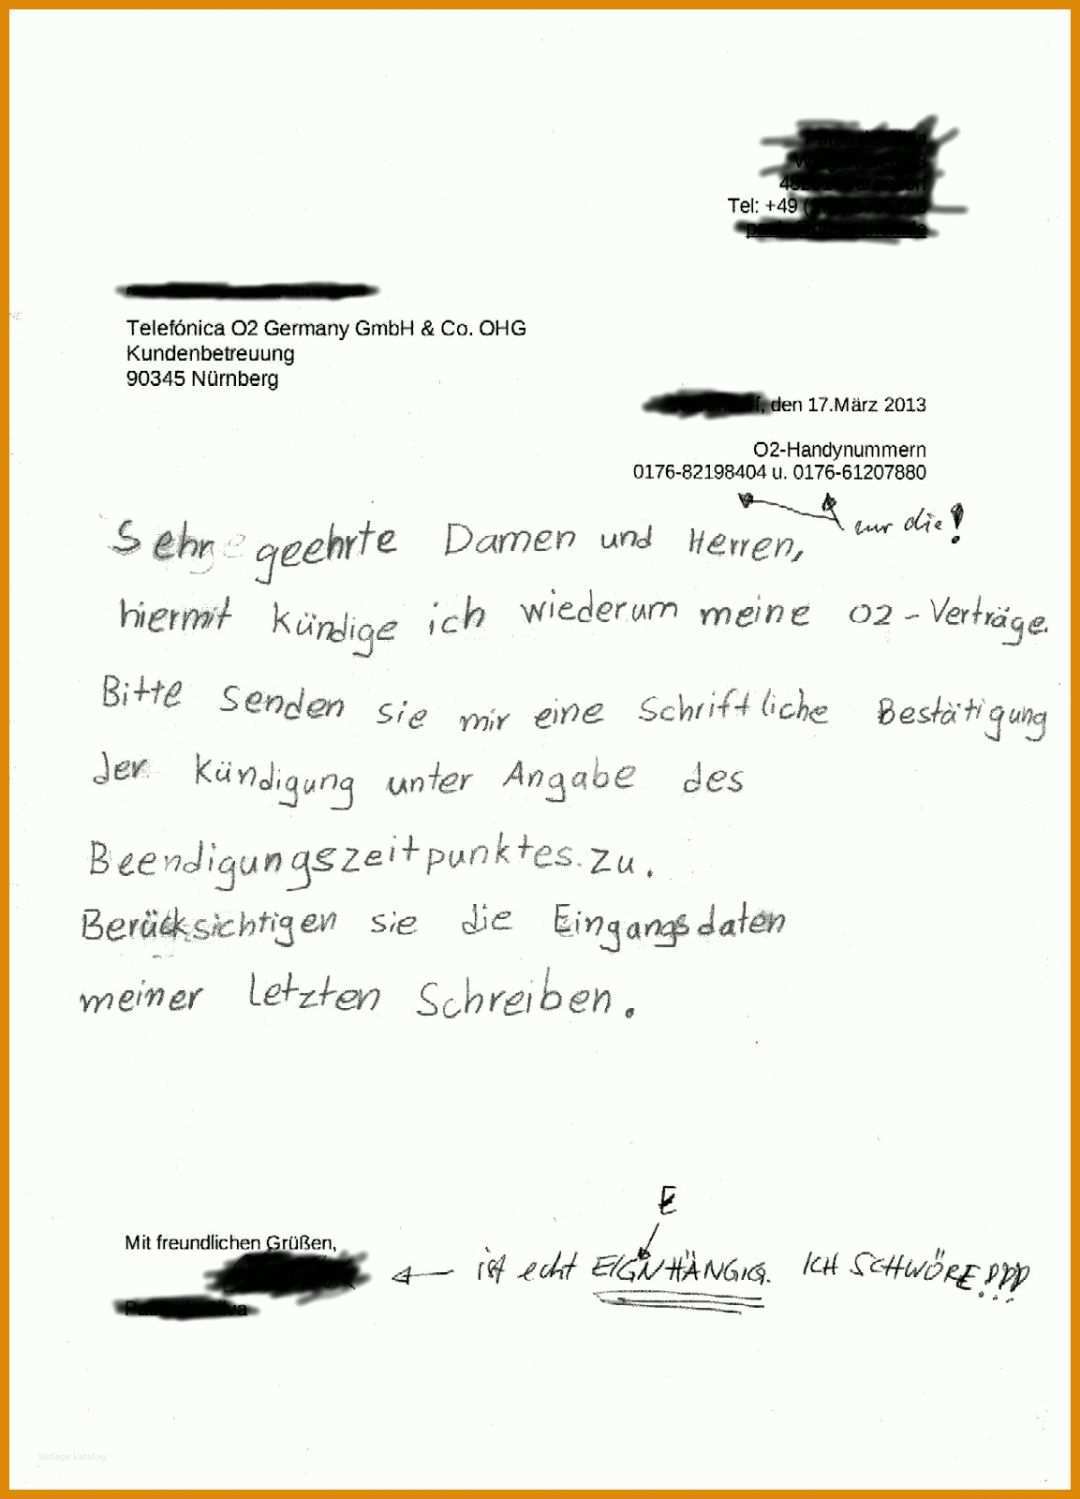 Tel: +49 (
Telefónica O2 Germany GmbH & Co. OHG
Kundenbetreuung
90345 Nürnberg
, den 17.März 2013
O2-Handynummern
0176-82198404 u. 0176-61207880
nur die!
Sehr geehrte Damen und Herren,
hiermit kündige ich wiederum meine O2-Verträge.
Bitte senden sie mir eine Schriftliche Bestätigung
der Kündigung unter Angabe des
Beendigungszeitpunktes.zu.
Berücksichtigen sie die Eingangsdaten
meiner letzten Schreiben.
E
Mit freundlichen Grüßen,
ist echt EIGNHÄNGIG. ICH SCHWÖRE!!!